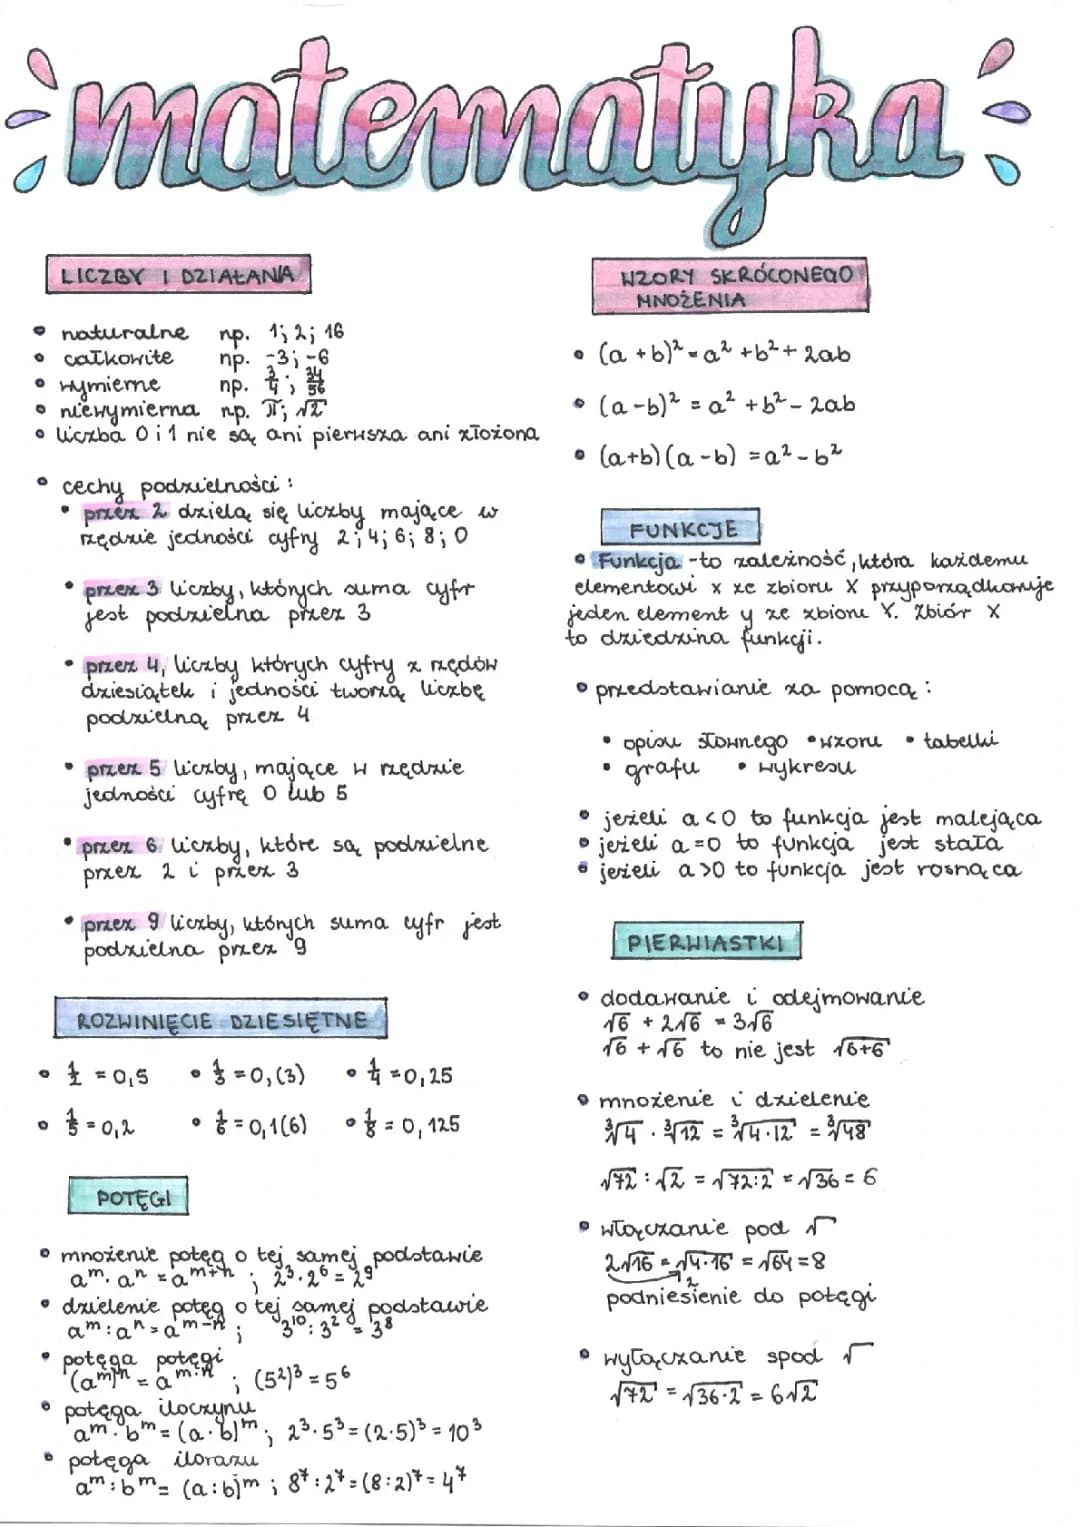 matematyka
LICZBY I DZIAŁANIA
• naturalne np. 1; 2; 16
• całkowite np. -3; -6
• wymierne np. 3/4; 34/56
• niewymierna np. π; √2
• liczba 0 i 1 nie są ani pierwsza ani złożona
• cechy podzielności:
• przez 2 dzielą się liczby mające w
rzędzie jedności cyfry 2; 4; 6; 8; 0
• przez 3 liczby, których suma cyfr
jest podzielna przez 3
• przez 4, liczby których cyfry z rzędów
dziesiątek i jedności tworzą liczbę
podzielną przez 4
• przez 5 liczby, mające w rzędzie
jedności cyfrę 0 lub 5
• przez 6 liczby, które są podzielne
przez 2 i przez 3
• przez 9 liczby, których suma cyfr jest
podzielna przez 9
ROZWINIĘCIE DZIESIĘTNE
• 1/2 = 0,5 • 1/3 = 0,(3) • 1/4 = 0,25
• 1/5 = 0,2 • 1/6 = 0,1(6) • 1/8 = 0,125
POTĘGI
• mnożenie potęg o tej samej podstawie
aᵐ · aⁿ = aᵐ⁺ⁿ ; 2³ · 2⁶ = 2⁹
• dzielenie potęg o tej samej podstawie
aᵐ : aⁿ = aᵐ⁻ⁿ ; 3¹⁰ : 3² = 3⁸
• potęga potęgi
(aᵐ)ⁿ = aᵐ˙ⁿ ; (5²)³ = 5⁶
• potęga iloczynu
aᵐ · bᵐ = (a · b)ᵐ ; 2³ · 5³ = (2 · 5)³ = 10³
• potęga ilorazu
aᵐ : bᵐ = (a : b)ᵐ ; 8⁷ : 2⁷ = (8 : 2)⁷ = 4⁷
WZORY SKRÓCONEGO
MNOŻENIA
• (a + b)² = a² + b² + 2ab
• (a - b)² = a² + b² - 2ab
• (a+b)(a-b) = a² - b²
FUNKCJE
• Funkcja - to zależność, która każdemu
elementowi x ze zbioru X przyporządkowuje
jeden element y ze zbioru Y. Zbiór X
to dziedzina funkcji.
• przedstawianie za pomocą:
• opisu słownego • wzoru • tabelki
• grafu • wykresu
• jeżeli a < 0 to funkcja jest malejąca
• jeżeli a = 0 to funkcja jest stała
• jeżeli a > 0 to funkcja jest rosnąca
PIERWIASTKI
• dodawanie i odejmowanie
√6 + 2√6 = 3√6
√6 + √6 to nie jest √6+6
• mnożenie i dzielenie
∛4 · ∛12 = ∛4·12 = ∛48
√72 : √2 = √72:2 = √36 = 6
• włączanie pod √
2√16 = √4·16 = √64 = 8
2
podniesienie do potęgi
• wyłączanie spod √
√72 = √36·2 = 6√2